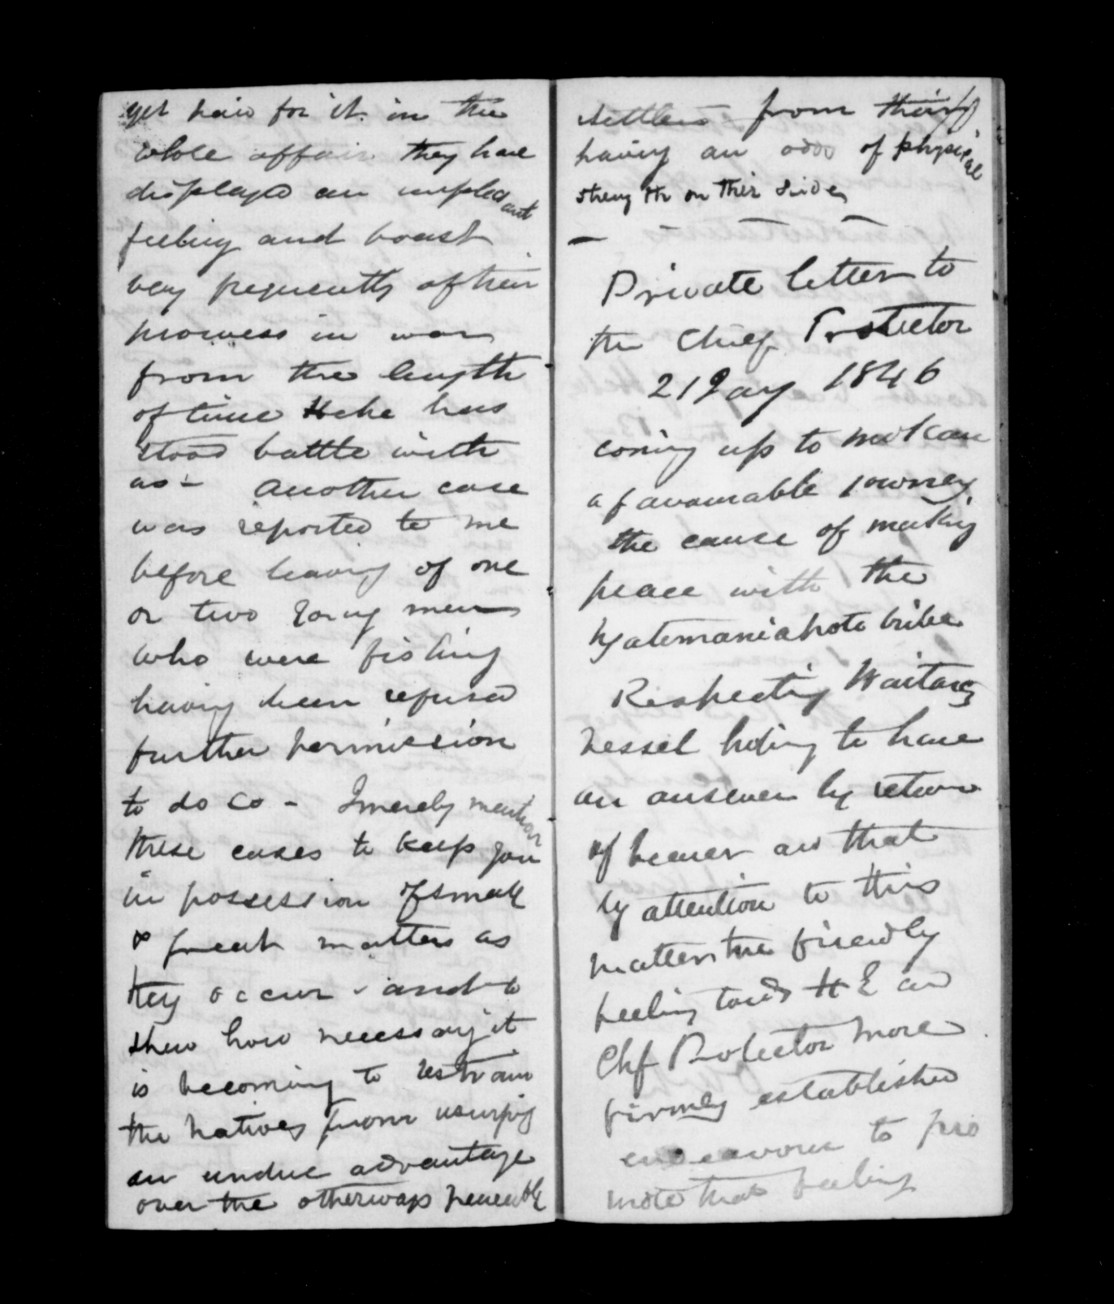 get paid for it. in the
whole affair they have
displayed an unpleasant
feeling and boast
very frequently of their
prowess in war
from the length
of time Heke has
stood battle with
us - another case
was reported to me
before leaving of one
or two young men
who were fishing
having been refused
further permission
to do so - I merely mention
these cases to keep you
in possession of small
& great matters as
they occur and to
shew how necessary it
is becoming to restrain
the natives from usurping
an undue advantage
over the otherways peaceable
settlers from their
having an odds of physical
strength on their side
Private letter to
the Chief Protector
21 Jany 1846
coming up to
a favourable journey
the cause of making
peace with the
tribe
Respecting Waitangi
vessel hoping to have
an answer by return
of bearer and that
by attention to this
matter the friendly
feeling towds H E and
Chf Protector more
firmly established
endeavour to pro
mote that feeling